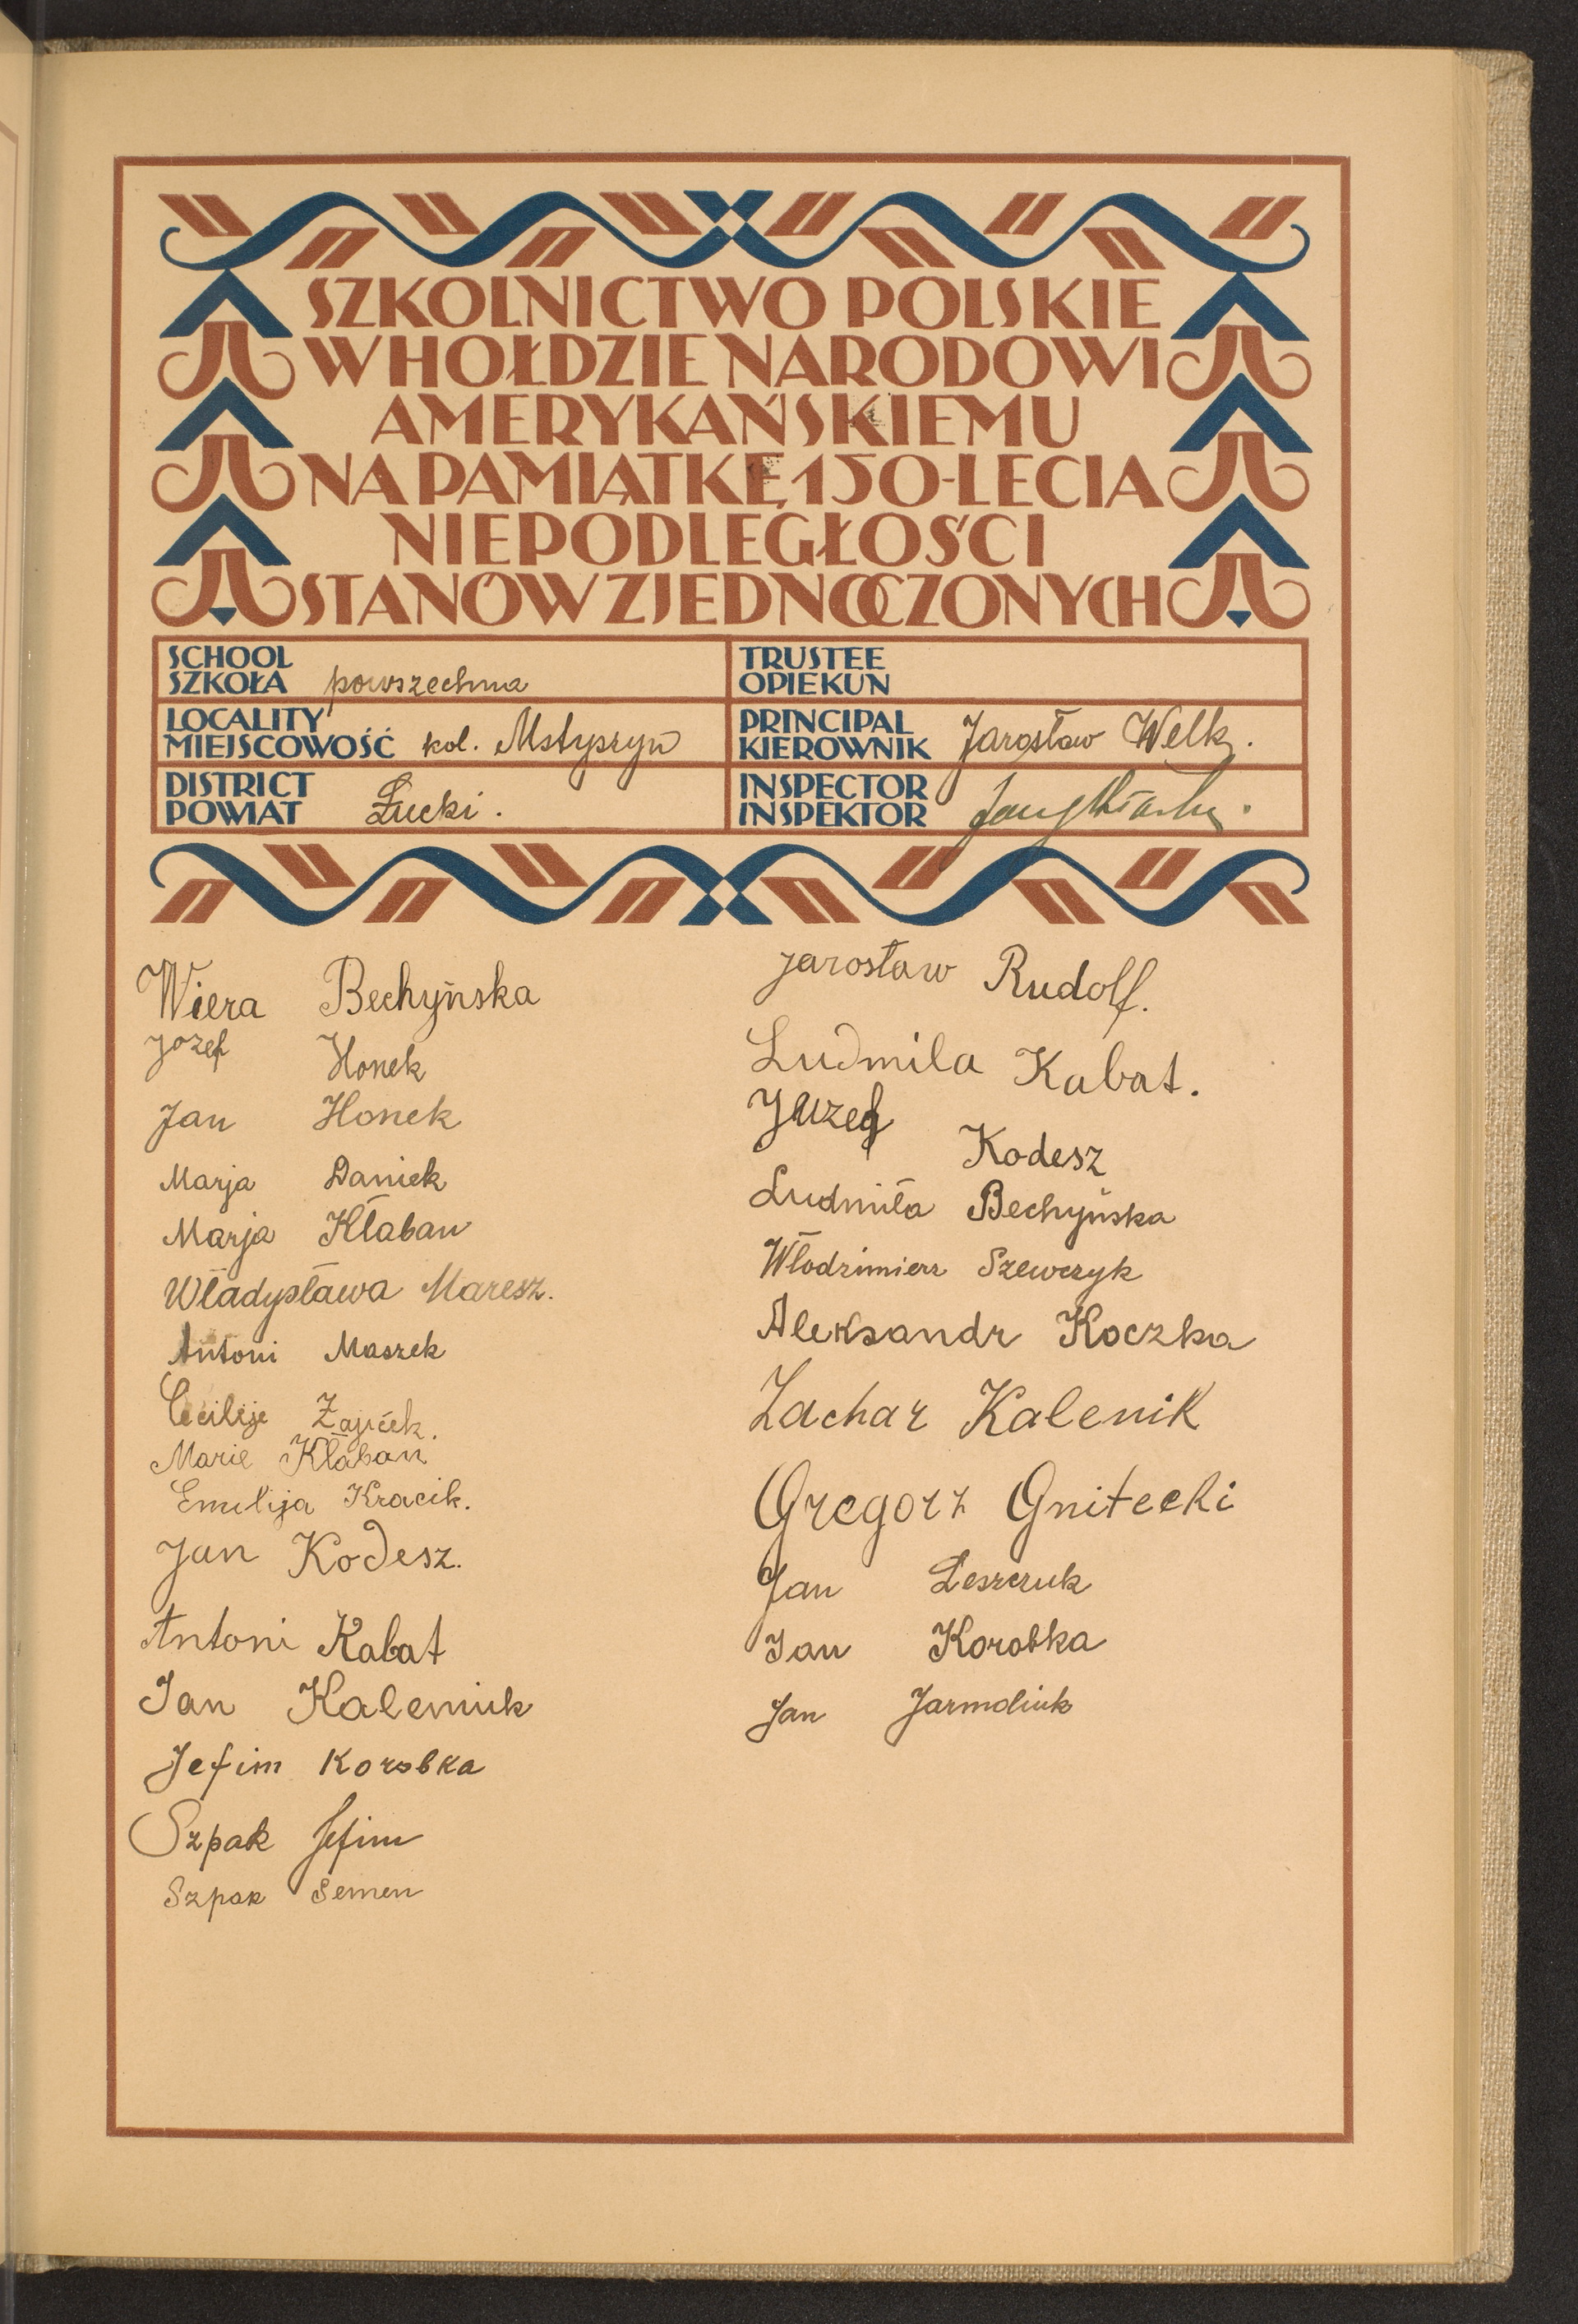 SZKOLNICTWO POLSKIE
W HOŁDZIE NARODOWI
AMERYKAŃSKIEMU
NA PAMIĄTKĘ 150-LECIA
NIEPODLEGŁOŚCI
STANÓW ZJEDNOCZONYCH
SCHOOL
SZKOŁA powszechna
LOCALITY
MIEJSCOWOŚĆ kol. Mstyszyn
DISTRICT
POWIAT Łucki.
TRUSTEE
OPIEKUN
PRINCIPAL
KIEROWNIK Jarosław Welk.
INSPECTOR
INSPEKTOR
Wiera Bechyńska
Jozef Honek
Jan Honek
Marja Daniek
Marja Kłaban
Władysława Maresz.
Antoni Maszek
Cecilije Zajiček.
Marie Klaban
Emilija Kracik.
Jan Kodesz.
Antoni Kabat
Jan Kaleniuk
Jefim Korobka
Szpak Jefim
Szpak Semen
Jarosław Rudolf.
Ludmila Kabat.
Juzef Kodesz
Ludmiła Bechyńska
Włodzimierz Szewczyk
Aleksandr Koczka
Zachar Kalenik
Gregorz Gnitecki
Jan Leszczuk
Jan Korobka
Jan Jarmoliuk